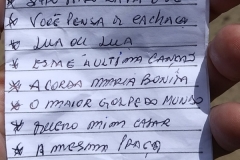 * VOCÊ PENSA Q CACHAÇA
* LUA DE LUA
* ESTA É ULTIMA CANÇÃO
* ACORDA MARIA BONITA
* O MAIOR GOLPE DO MUNDO
* QUERO MIM CASAR
* A MESMA PRAÇA